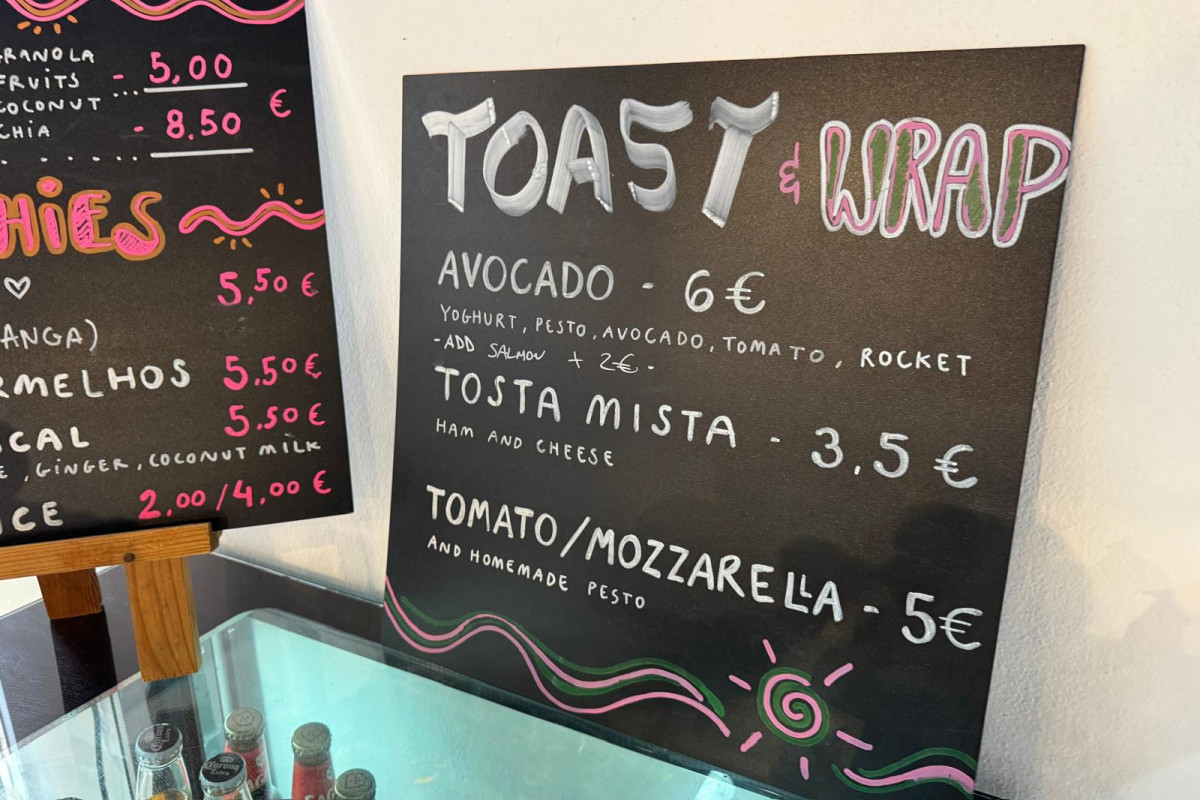 GRANOLA
FRUITS - 5,00
COCONUT
CHIA - 8.50 €
HiES
5,50 €
ANGA)
RMELHOS 5.50 €
ICAL 5.50 €
, GINGER, COCONUT MILK
ICE 2.00/4.00 €
TOAST & WRAP
AVOCADO - 6€
YOGHURT, PESTO, AVOCADO, TOMATO, ROCKET
-ADD SALMON + 2€.
TOSTA MISTA - 3.5 €
HAM AND CHEESE
TOMATO/MOZZARELLA - 5€
AND HOMEMADE PESTO
Corona
Extra